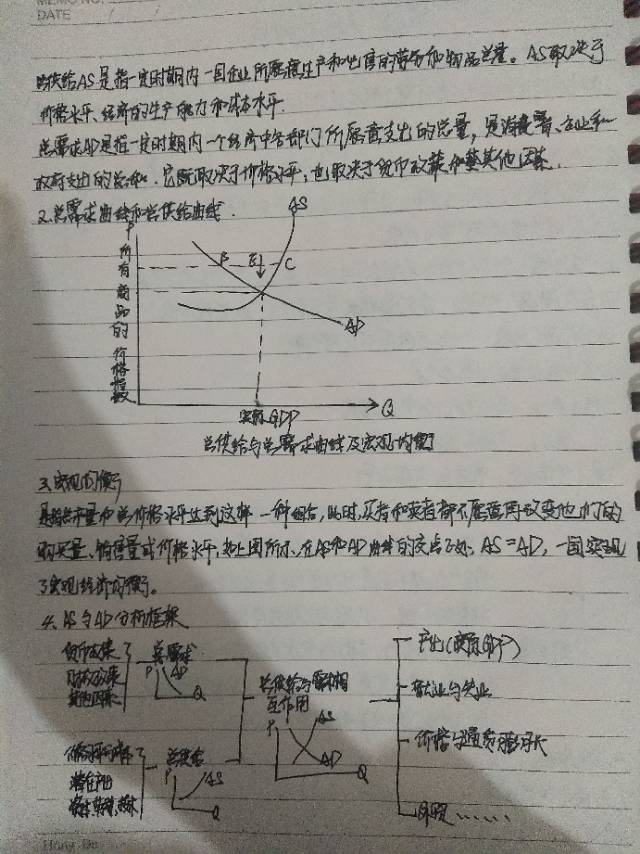 MEMO NO.
DATE / /
总供给AS是指一定时期内一国企业所愿意生产和出售的劳务和物品总量。AS取决于
价格水平、经济的生产能力和成本水平.
总需求AD是指一定时期内一个经济中各部门所愿意支出的总量,是消费者、企业和
政府支出的总和.它既取决于价格水平,也取决于货币政策和其他因素.
2.总需求曲线和总供给曲线.
P
AS
B E C
所有商品的价格指数
AD
实际GDP Q
总供给与总需求曲线及宏观均衡
3.宏观均衡
是指总产量和总价格水平达到这样一种组合,此时,买者和卖者都不愿意再改变他们的
购买量、销售量或价格水平,如上图所示,在AS和AD曲线的交点E处,AS=AD,一国实现
了宏观经济均衡。
4.AS与AD分析框架
货币政策
财政政策
其他因素
总需求
P AD
Q
总供给与需求相
互作用
P AS
AD
Q
产出(实际GDP)
就业与失业
价格与通货膨胀
外贸……
价格水平与成本
潜在产出
总供给
P AS
Q